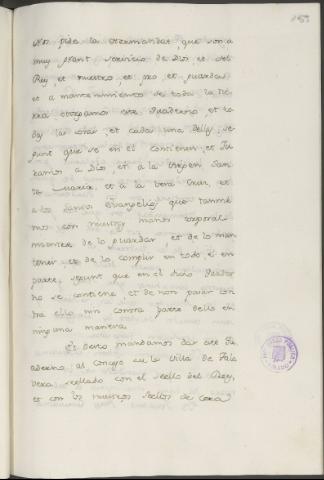 Nos pide la Hermandat, que son a
muy grant servicio de Dios et del
Rey, et nuestro, et pro, et guarda,
et a mantenimiento de toda la tie-
rra otorgamos este Quaderno, et to-
das las cosas, et cada una dellas, se-
gunt que se en el contienen, et Ju-
ramos a Dios et à la Virgen San-
ta Maria, et à la vera Cruz, et
a los Santos Evangelios, que tanne-
mos con nuestras manos corporal-
mientre de lo guardar, et de lo man-
tener, et de lo complir en todo è en
parte, segunt que en el dicho Quader-
no se contiene, et de non pasar con-
tra ello nin contra parte dello en
ninguna manera.
Et desto mandamos dar este Qu-
aderno, al Concejo de la Villa de Tala-
vera sellado con el seello del Rey,
et con los nuestros seellos de cera